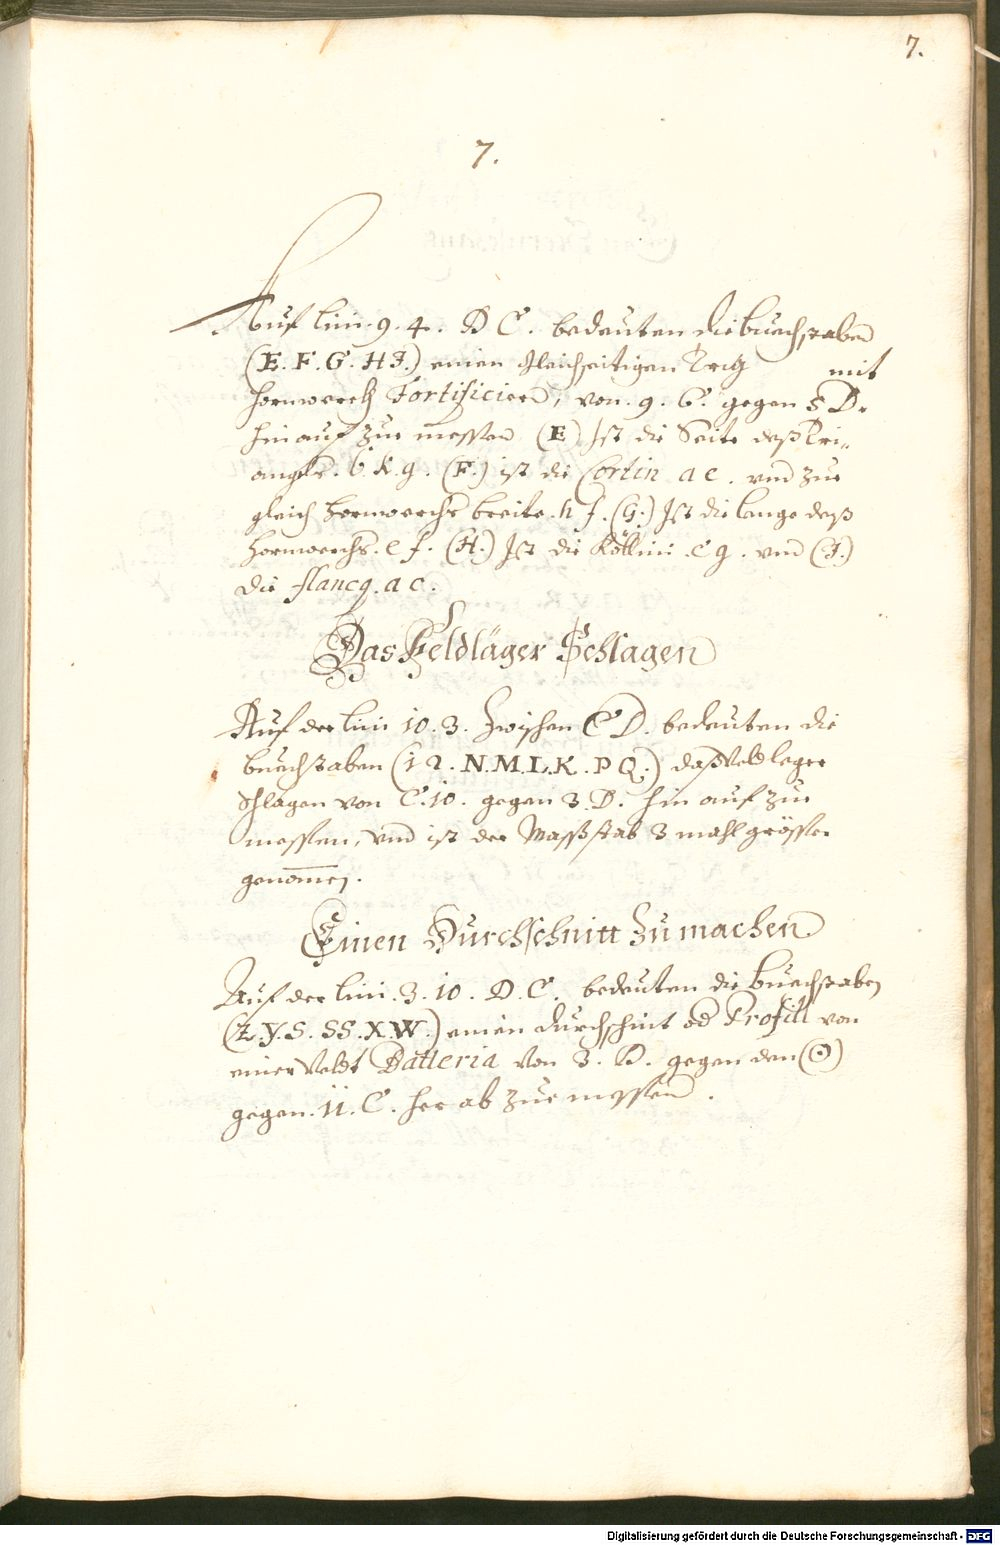 7.
7.
Auf lini. 9. 4. D C. bedeuten die buechstaben
(E. F. G. H I.) einen gleichseitigen Trig mit
hornwerch Fortificiern, von. 9. C. gegen 5 D.
hinauf zue messen (E) Ist die Seite deß Tri¬
angls. b k g. (F.) ist die Cortin a e. vnd zue
gleich hornwerchs breite. h f. (G.) Ist die lange deß
hornwerchs. e f. (H.) Ist die Köllini. e g. vnd (I.)
die flancq. a c.
Das Feldläger Schlagen
Auf der lini 10. 3. Zwischen C D. bedeuten die
buechstaben (1 2. N. M. L. K. P Q.) daß Veldleger
Schlagen von C. 10. gegen 3. D. hin auf zue
messen, vnd ist der Maßstab 3 mahl grösser
genomen.
Einen Durchschnitt Zu machen
Auf der lini. 3. 10. D. C. bedeuten die buechstaben
(Z. Y. S. SS. X. W.) einen durchschnit od Profill von
einer Veldt Batteria von 3. D. gegen den (☉)
gegen. 11. C. her ab zue messen.
Digitalisierung gefördert durch die Deutsche Forschungsgemeinschaft - DFG